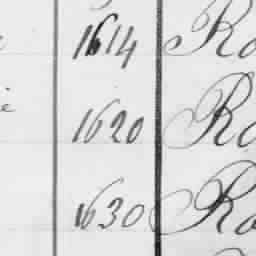 1614 Ro
ie 1620 Ro
1630 Ro